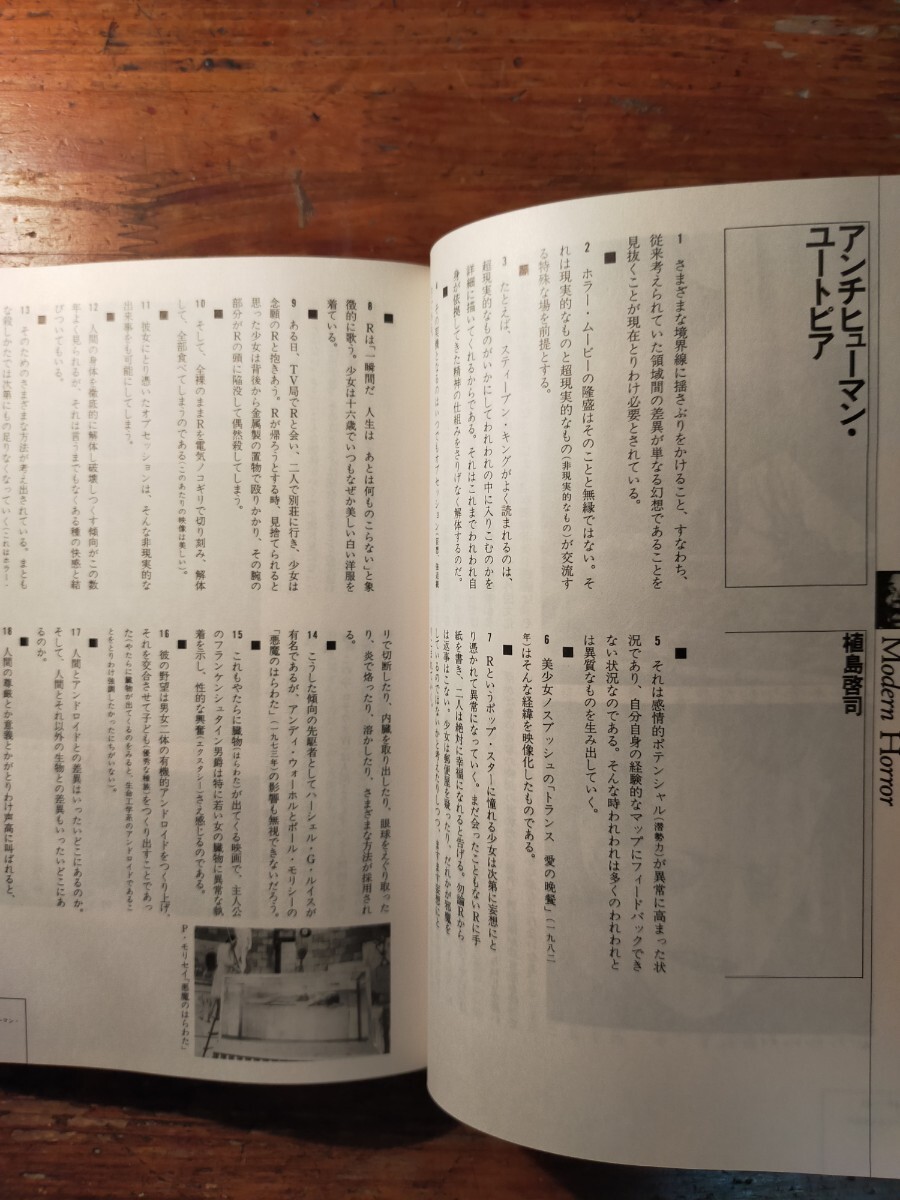 アンチヒューマン・
ユートピア
植島啓司
Modern Horror
1 さまざまな境界線に揺さぶりをかけること、すなわち、
従来考えられていた領域間の差異が単なる幻想であることを
見抜くことが現在とりわけ必要とされている。
■
2 ホラー・ムービーの隆盛はそのことと無縁ではない。そ
れは現実的なものと超現実的なもの(非現実的なもの)が交流す
る特殊な場を前提とする。
■
3 たとえば、スティーブン・キングがよく読まれるのは、
超現実的なものがいかにしてわれわれの中に入りこむのかを
詳細に描いてくれるからである。それはこれまでわれわれ自
身が依拠してきた精神の仕組みをさりげなく解体するのだ。
■
4
■
5 それは感情的ポテンシャル(潜勢力)が異常に高まった状
況であり、自分自身の経験的なマップにフィードバックでき
ない状況なのである。そんな時われわれは多くのわれわれと
は異質なものを生み出していく。
■
6 美少女ノスプラッシュの「トランス 愛の晩餐」(一九八二
年)はそんな経緯を映像化したものである。
■
7 Rというポップ・スターに憧れる少女は次第に妄想にと
り憑かれて異常になっていく。まだ会ったこともないRに手
紙を書き、二人は絶対に幸福になれると告げる。勿論Rから
は返事はこない。少女は郵便屋を疑ったり、だれかが邪魔を
■
8 Rは「一瞬間だ 人生は あとは何ものこらない」と象
徴的に歌う。少女は十六歳でいつもなぜか美しい白い洋服を
着ている。
■
9 ある日、TV局でRと会い、二人で別荘に行き、少女は
念願のRと抱きあう。Rが帰ろうとする時、見捨てられると
思った少女は背後から金属製の置物で殴りかかり、その腕の
部分がRの頭に陥没して偶然殺してしまう。
■
10 そして、全裸のままRを電気ノコギリで切り刻み、解体
して、全部食べてしまうのである(このあたりの映像は美しい)。
■
11 彼女にとり憑いたオブセッションは、そんな非現実的な
出来事をも可能にしてしまう。
■
12 人間の身体を徹底的に解体し破壊しつくす傾向がこの数
年よく見られるが、それは言うまでもなくある種の快感と結
びついてもいる。
■
13 そのためのさまざまな方法が考え出されている。まとも
な殺しかたでは次第にもの足りなくなっていく(これはホラー・
りで切断したり、内臓を取り出したり、眼球をえぐり取った
り、炎で烙ったり、溶かしたり、さまざまな方法が採用され
る。
■
14 こうした傾向の先駆者としてハーシェル・G・ルイスが
有名であるが、アンディ・ウォーホルとポール・モリシーの
「悪魔のはらわた」(一九七三年)の影響も無視できないだろう。
■
15 これもやたらに臓物(はらわた)が出てくる映画で、主人公
のフランケンシュタイン男爵は特に若い女の臓物に異常な執
着を示し、性的な興奮(エクスタシー)さえ感じるのである。
■
16 彼の野望は男女二体の有機的アンドロイドをつくり上げ、
それを交合させて子ども(優秀な種族)をつくり出すことであっ
た(やたらに臓物が出てくるのをみると、生命工学系のアンドロイドであるこ
とをとりわけ強調したかったにちがいない)。
■
17 人間とアンドロイドとの差異はいったいどこにあるのか。
そして、人間とそれ以外の生物との差異もいったいどこにあ
るのか。
■
18 人間の尊厳とか意義とかがとりわけ声高に叫ばれると、
P・モリセイ「悪魔のはらわた」